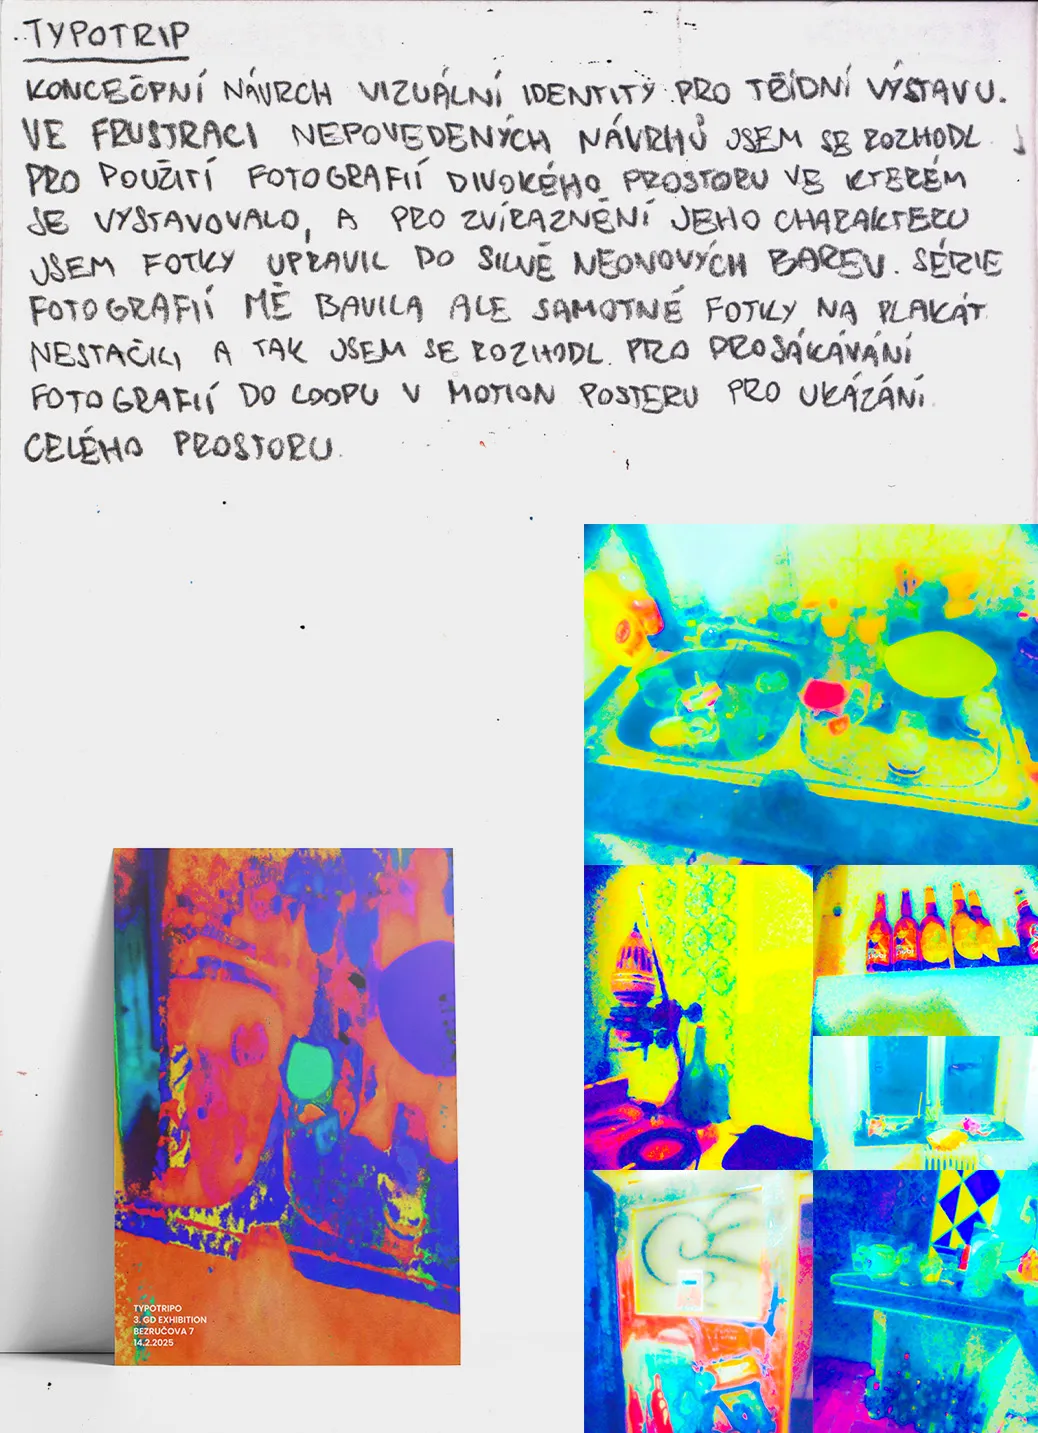 TYPOTRIP
KONCEČPNÍ NÁVRCH VIZUÁLNÍ IDENTITY PRO TŘÍDNÍ VÝSTAVU.
VE FRUSTRACI NEPOVEDENÝCH NÁVRHŮ JSEM SE ROZHODL
PRO POUŽITÍ FOTOGRAFIÍ DIVOKÉHO PROSTORU VE KTERÉM
SE VYSTAVOVALO, A PRO ZVÍRAZNĚNÍ JEHO CHARAKTERU
JSEM FOTKY UPRAVIL DO SILNĚ NEONOVÝCH BAREV. SÉRIE
FOTOGRAFIÍ MĚ BAVILA ALE SAMOTNÉ FOTKY NA PLAKÁT
NESTAČILI A TAK JSEM SE ROZHODL PRO PROSAKÁVÁNÍ
FOTOGRAFIÍ DO LOOPU V MOTION POSTERU PRO UKÁZÁNÍ
CELÉHO PROSTORU.
TYPOTRIPO
3. GD EXHIBITION
BEZRUČOVA 7
14.2.2025